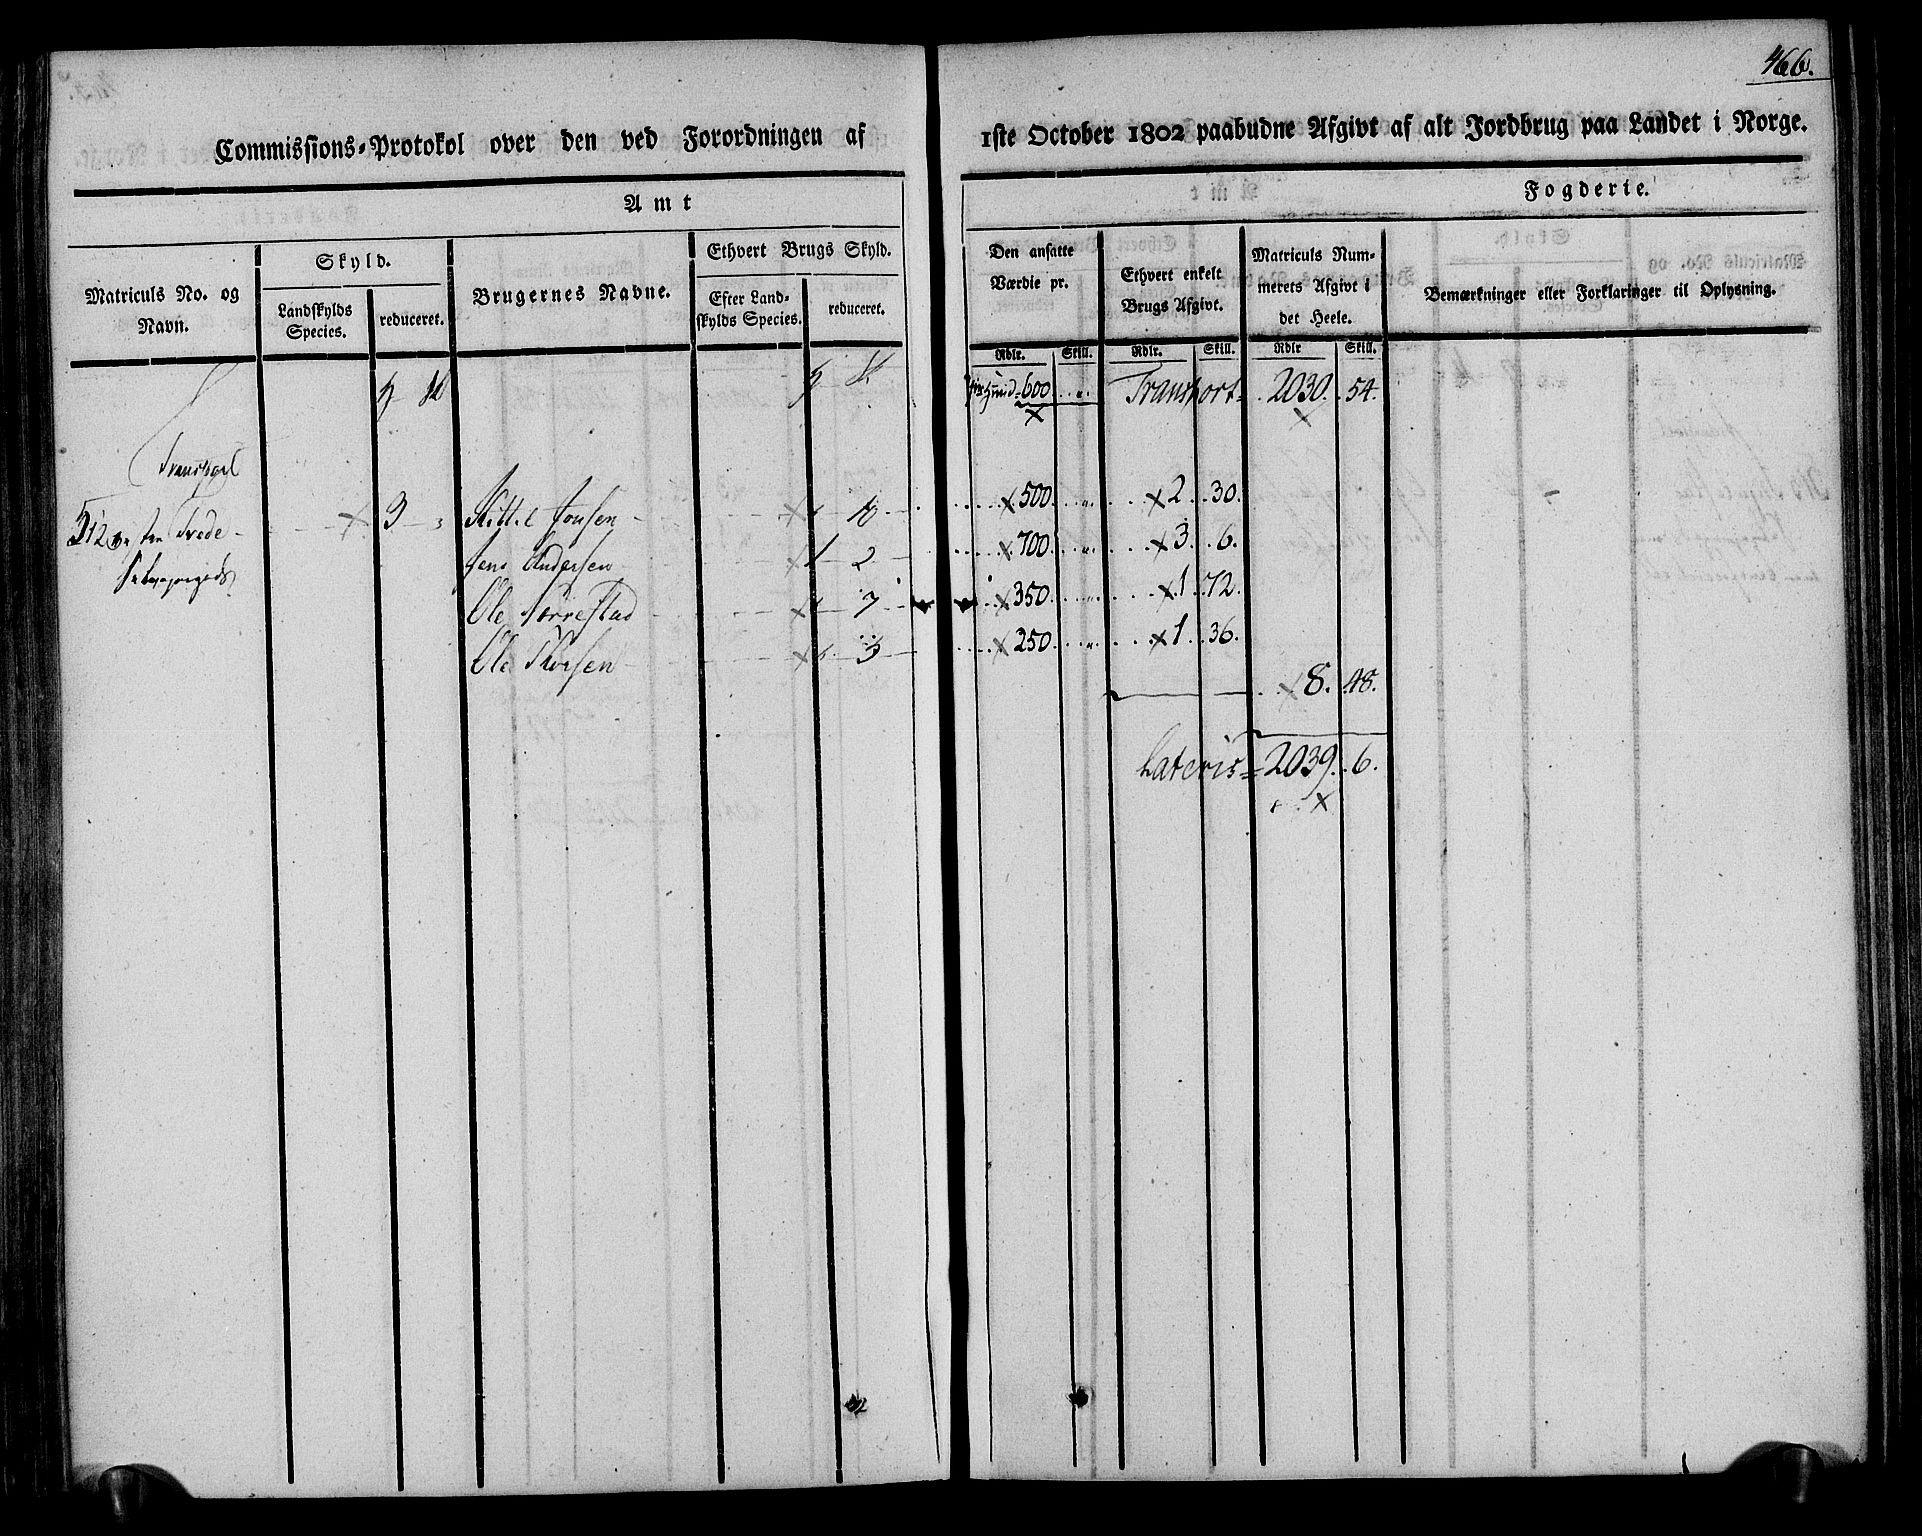 466.
Commissions-Protokol over den ved Forordningen af 1ste October 1802 paabudne Afgivt af alt Jordbrug paa Landet i Norge.
Amt
Fogderie.
Matriculs No. og Navn.
Skyld.
Landskylds Species.
reduceret.
Brugernes Navne.
Ethvert Brugs Skyld.
Efter Landskylds Species.
reduceret.
Den ansatte Værdie pr.
Ethvert enkelt Brugs Afgivt.
Matriculs Nummerets Afgivt i det Heele.
Bemærkninger eller Forklaringer til Oplysning.
Rdlr. Skill. Rdlr. Skill. Rdlr Skill.
600 Transport 2030. 54.
Transport
512 3 Kittil Jonsen 10 500. 2. 30.
Jens Andersen 1 2 700. 3. 6.
Ole Torrestad 7 350. 1. 72.
Ole Thorsen 5 250. 1. 36.
8. 48.
Lateris = 2039. 6.